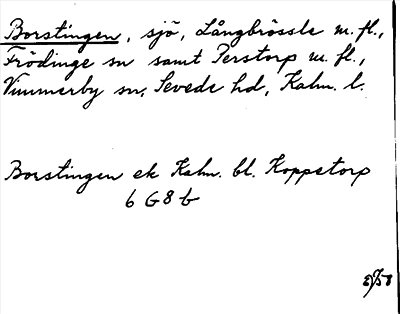 Borstingen, sjö, Långbrössle m.fl.,
Frödinge sn samt Perstorp m.fl.,
Vimmerby sn, Sevede hd, Kalm. l.
Borstingen ek Kalm. bl. Hoppetorp
6 G 8 b